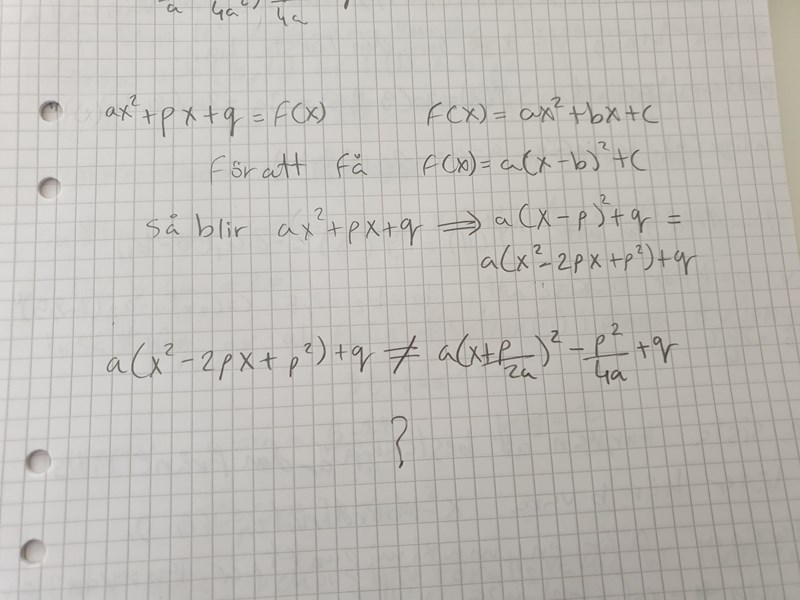 a 4a² 4a
ax²+px+q = f(x) f(x) = ax²+bx+c
För att få f(x) = a(x-b)²+c
så blir ax²+px+q ⟹ a(x-p)²+q =
a(x²-2px+p²)+q
a(x²-2px+p²)+q ≠ a(x+p/2a)² - p²/4a + q
?